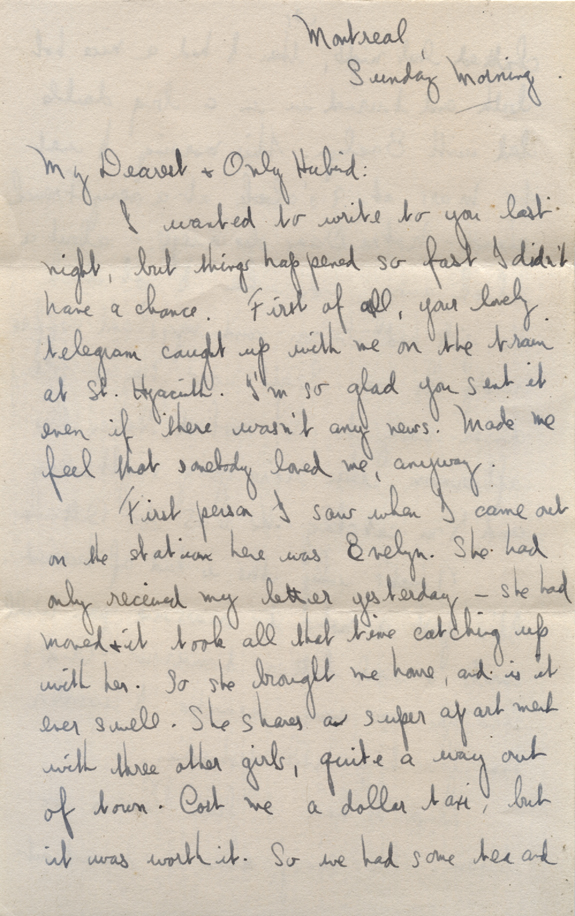 Montreal,
Sunday Morning.
My Dearest & Only Hubind:
I wanted to write to you last
night, but things happened so fast I didn't
have a chance. First of all, your lovely
telegram caught up with me on the train
at St. Hyacinth. I'm so glad you sent it
even if there wasn't any news. Made me
feel that somebody loved me, anyway.
First person I saw when I came out
on the station here was Evelyn. She had
only received my letter yesterday – she had
moved & it took all that time catching up
with her. So she brought me home, and is it
ever swell. She shares a super apartment
with three other girls, quite a way out
of town. Cost me a dollar taxi, but
it was worth it. So we had some tea and